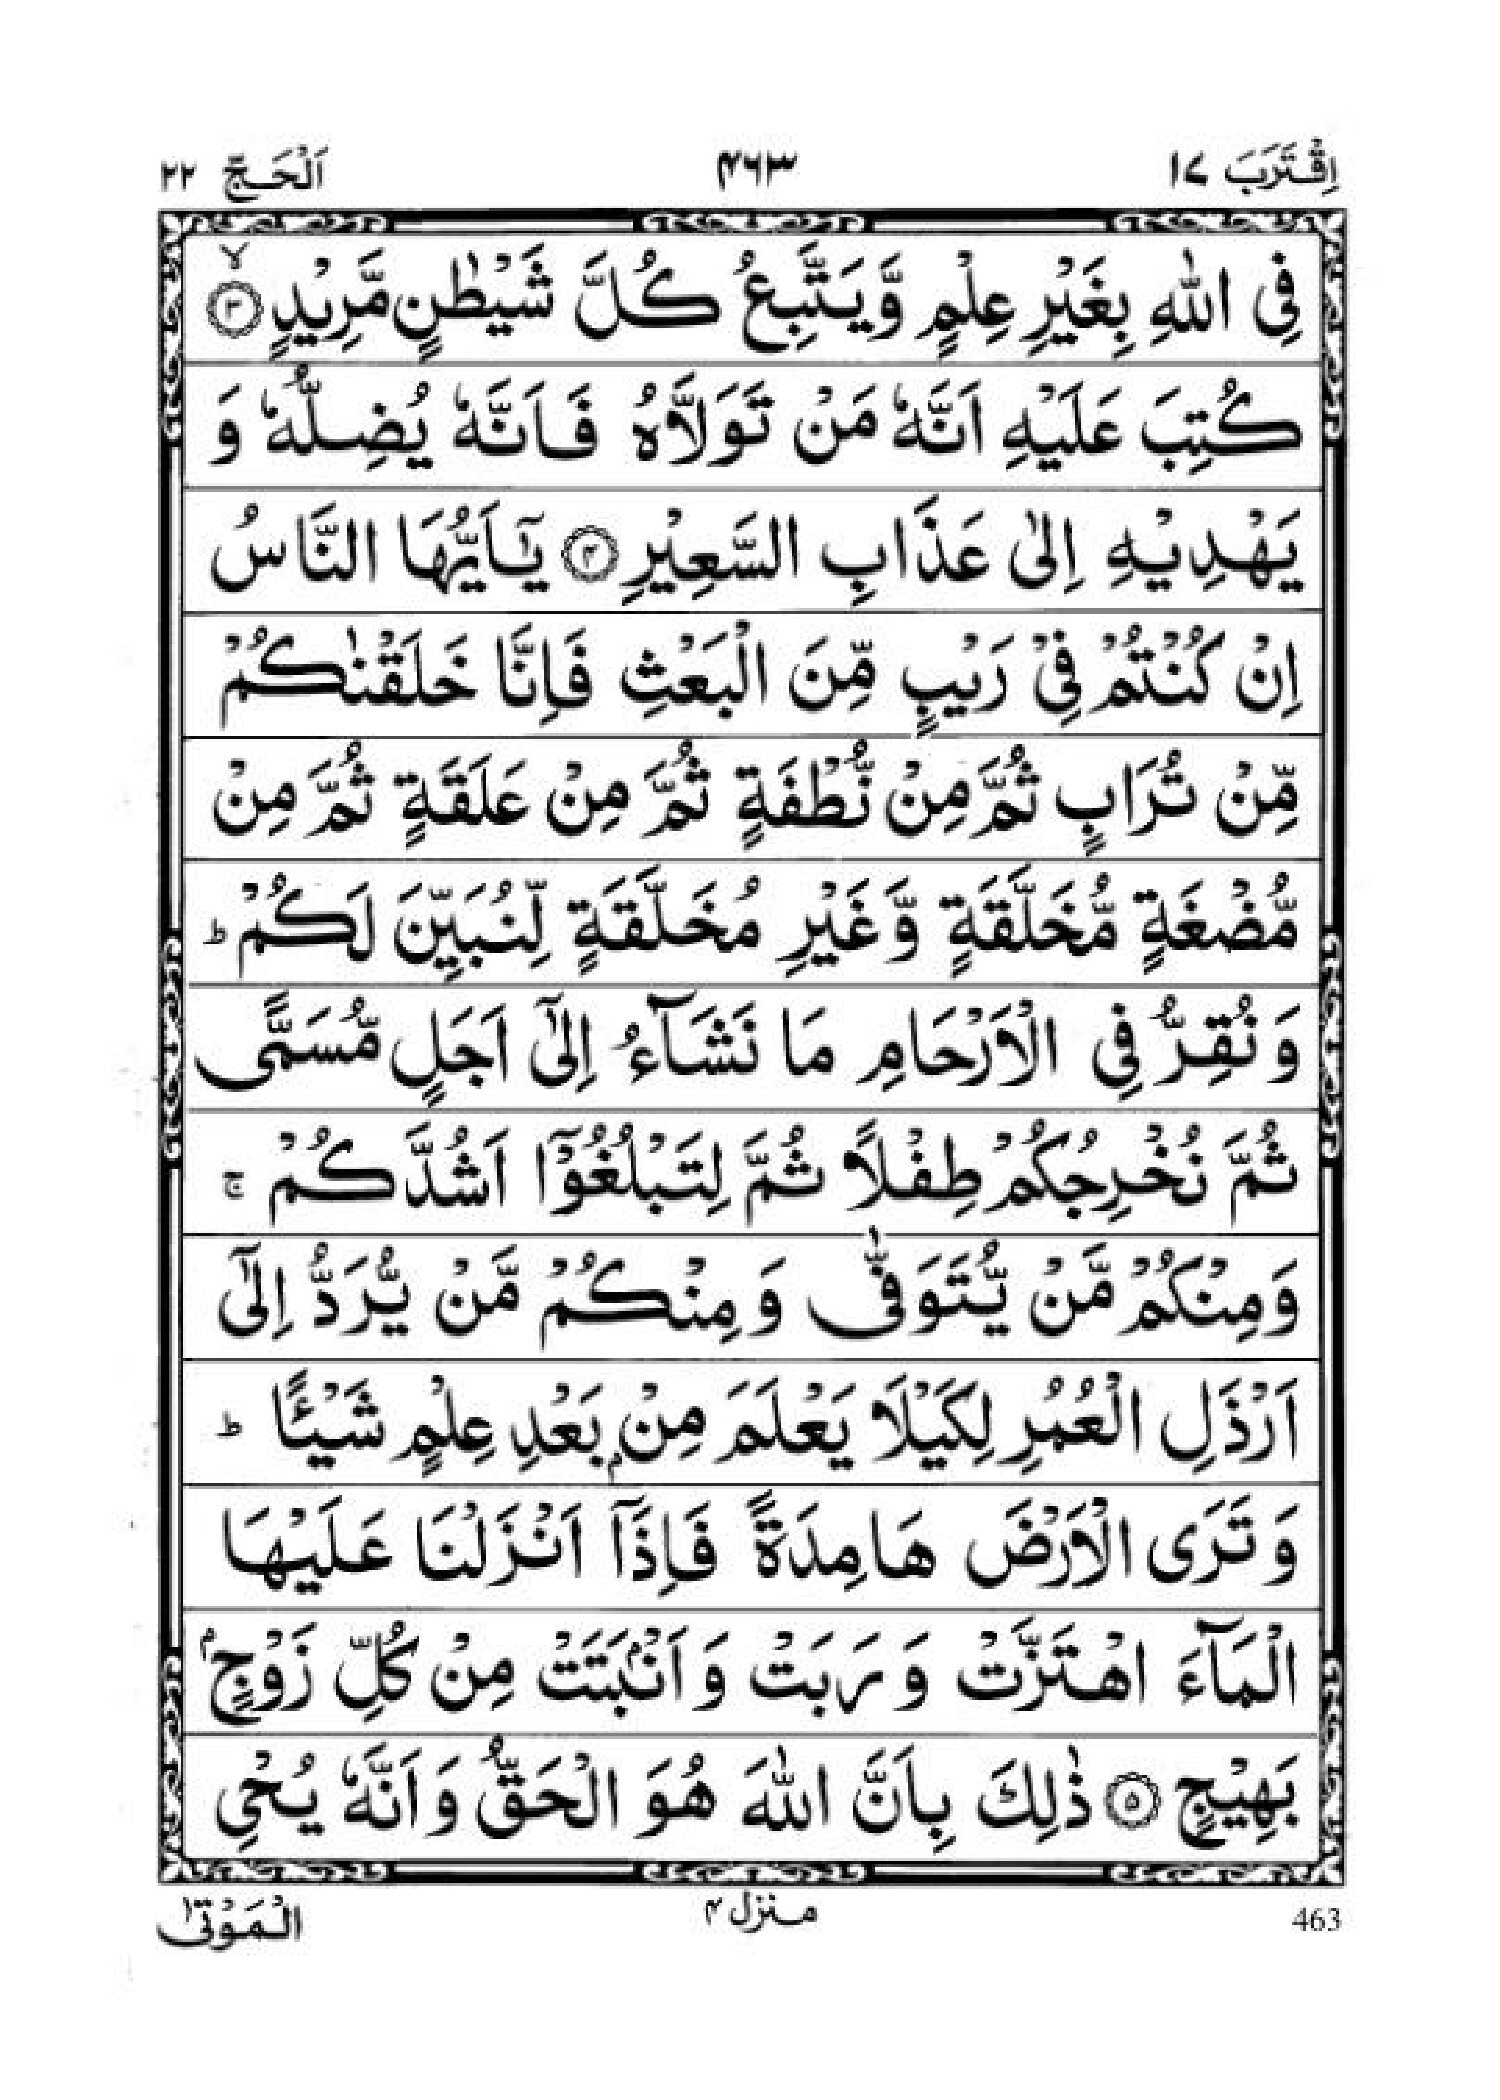 اِقْتَرَبَ ١٧ ۴٦٣ اَلْحَجّ ٢٢
فِی اللّٰهِ بِغَيْرِ عِلْمٍ وَّيَتَّبِعُ كُلَّ شَيْطٰنٍ مَّرِيْدٍ ۙ﴿٣﴾
كُتِبَ عَلَيْهِ اَنَّهٗ مَنْ تَوَلَّاهُ فَاَنَّهٗ يُضِلُّهٗ وَ
يَهْدِيْهِ اِلٰى عَذَابِ السَّعِيْرِ ﴿۴﴾ يٰۤاَيُّهَا النَّاسُ
اِنْ كُنْتُمْ فِیْ رَيْبٍ مِّنَ الْبَعْثِ فَاِنَّا خَلَقْنٰكُمْ
مِّنْ تُرَابٍ ثُمَّ مِنْ نُّطْفَةٍ ثُمَّ مِنْ عَلَقَةٍ ثُمَّ مِنْ
مُّضْغَةٍ مُّخَلَّقَةٍ وَّغَيْرِ مُخَلَّقَةٍ لِّنُبَيِّنَ لَكُمْ ؕ
وَنُقِرُّ فِی الْاَرْحَامِ مَا نَشَآءُ اِلٰۤى اَجَلٍ مُّسَمًّى
ثُمَّ نُخْرِجُكُمْ طِفْلًا ثُمَّ لِتَبْلُغُوْۤا اَشُدَّكُمْ ۚ
وَمِنْكُمْ مَّنْ يُّتَوَفّٰى وَمِنْكُمْ مَّنْ يُّرَدُّ اِلٰۤى
اَرْذَلِ الْعُمُرِ لِكَيْلَا يَعْلَمَ مِنْۢ بَعْدِ عِلْمٍ شَيْـًٔا ؕ
وَتَرَى الْاَرْضَ هَامِدَةً فَاِذَاۤ اَنْزَلْنَا عَلَيْهَا
الْمَآءَ اهْتَزَّتْ وَرَبَتْ وَاَنْۢبَتَتْ مِنْ كُلِّ زَوْجٍۭ
بَهِيْجٍ ﴿۵﴾ ذٰلِكَ بِاَنَّ اللّٰهَ هُوَ الْحَقُّ وَاَنَّهٗ يُحْیِ
463 منزل ۴ الْمَوْتٰى